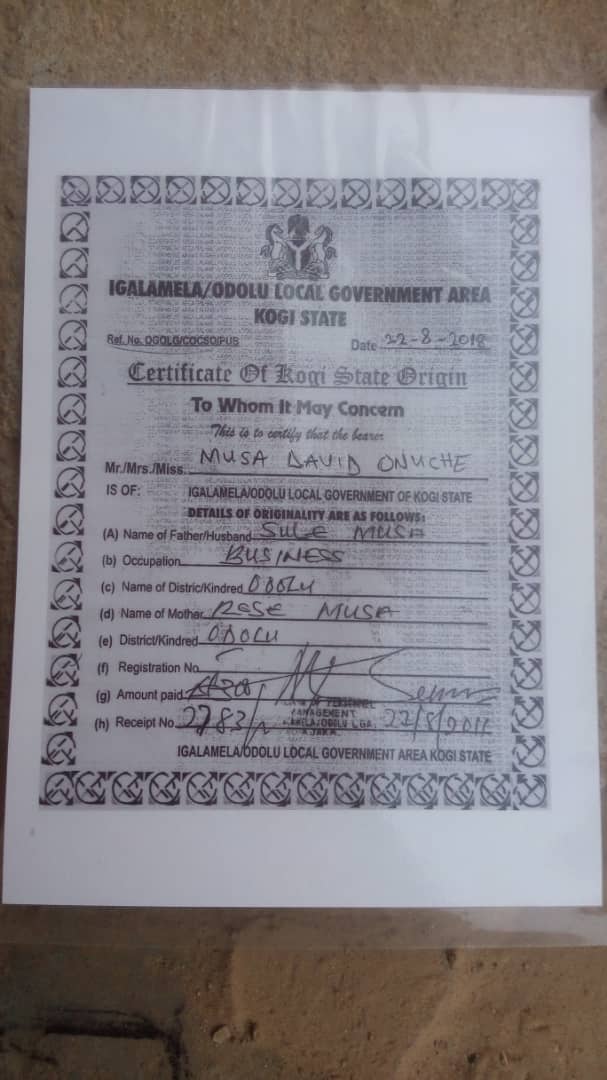 IGALAMELA/ODOLU LOCAL GOVERNMENT AREA
KOGI STATE
Ref. No. OGOLG/COCSO/PUB
Date 22-8-2018
Certificate Of Kogi State Origin
To Whom It May Concern
This is to certify that the bearer
Mr./Mrs./Miss. MUSA DAVID ONUCHE
IS OF: IGALAMELA/ODOLU LOCAL GOVERNMENT OF KOGI STATE
DETAILS OF ORIGINALITY ARE AS FOLLOWS:
(A) Name of Father/Husband SULE MUSA
(b) Occupation BUSINESS
(c) Name of Distric/Kindred ODOLU
(d) Name of Mother ROSE MUSA
(e) District/Kindred ODOLU
(f) Registration No
(g) Amount paid
OF PERSONNEL
MANAGEMENT
(h) Receipt No 2783
22/8/2018
IGALAMELA/ODOLU LOCAL GOVERNMENT AREA KOGI STATE